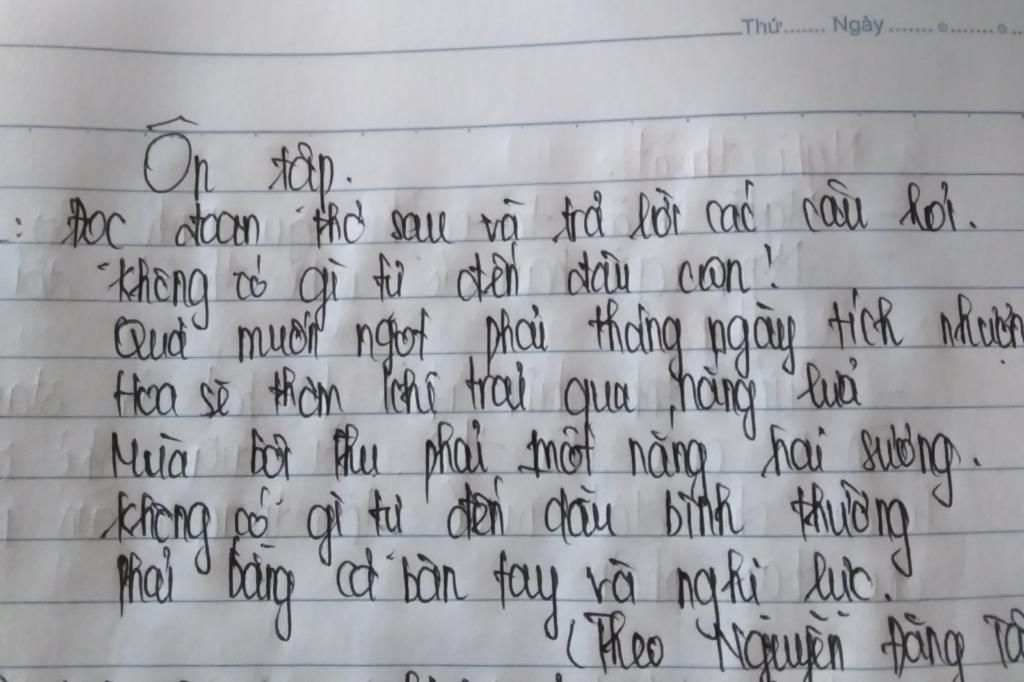 Thứ....... Ngày .......
Ôn tập.
: Đọc đoạn thơ sau và trả lời các câu hỏi.
"Không có gì tự đến đâu con!
Quả muốn ngọt phải tháng ngày tích nhuận
Hoa sẽ thơm khi trải qua nắng lửa
Mùa bội thu phải một nắng hai sương.
Không có gì tự đến dẫu bình thường
Phải bằng cả bàn tay và nghị lực.
(Theo Nguyễn Đăng Tấ